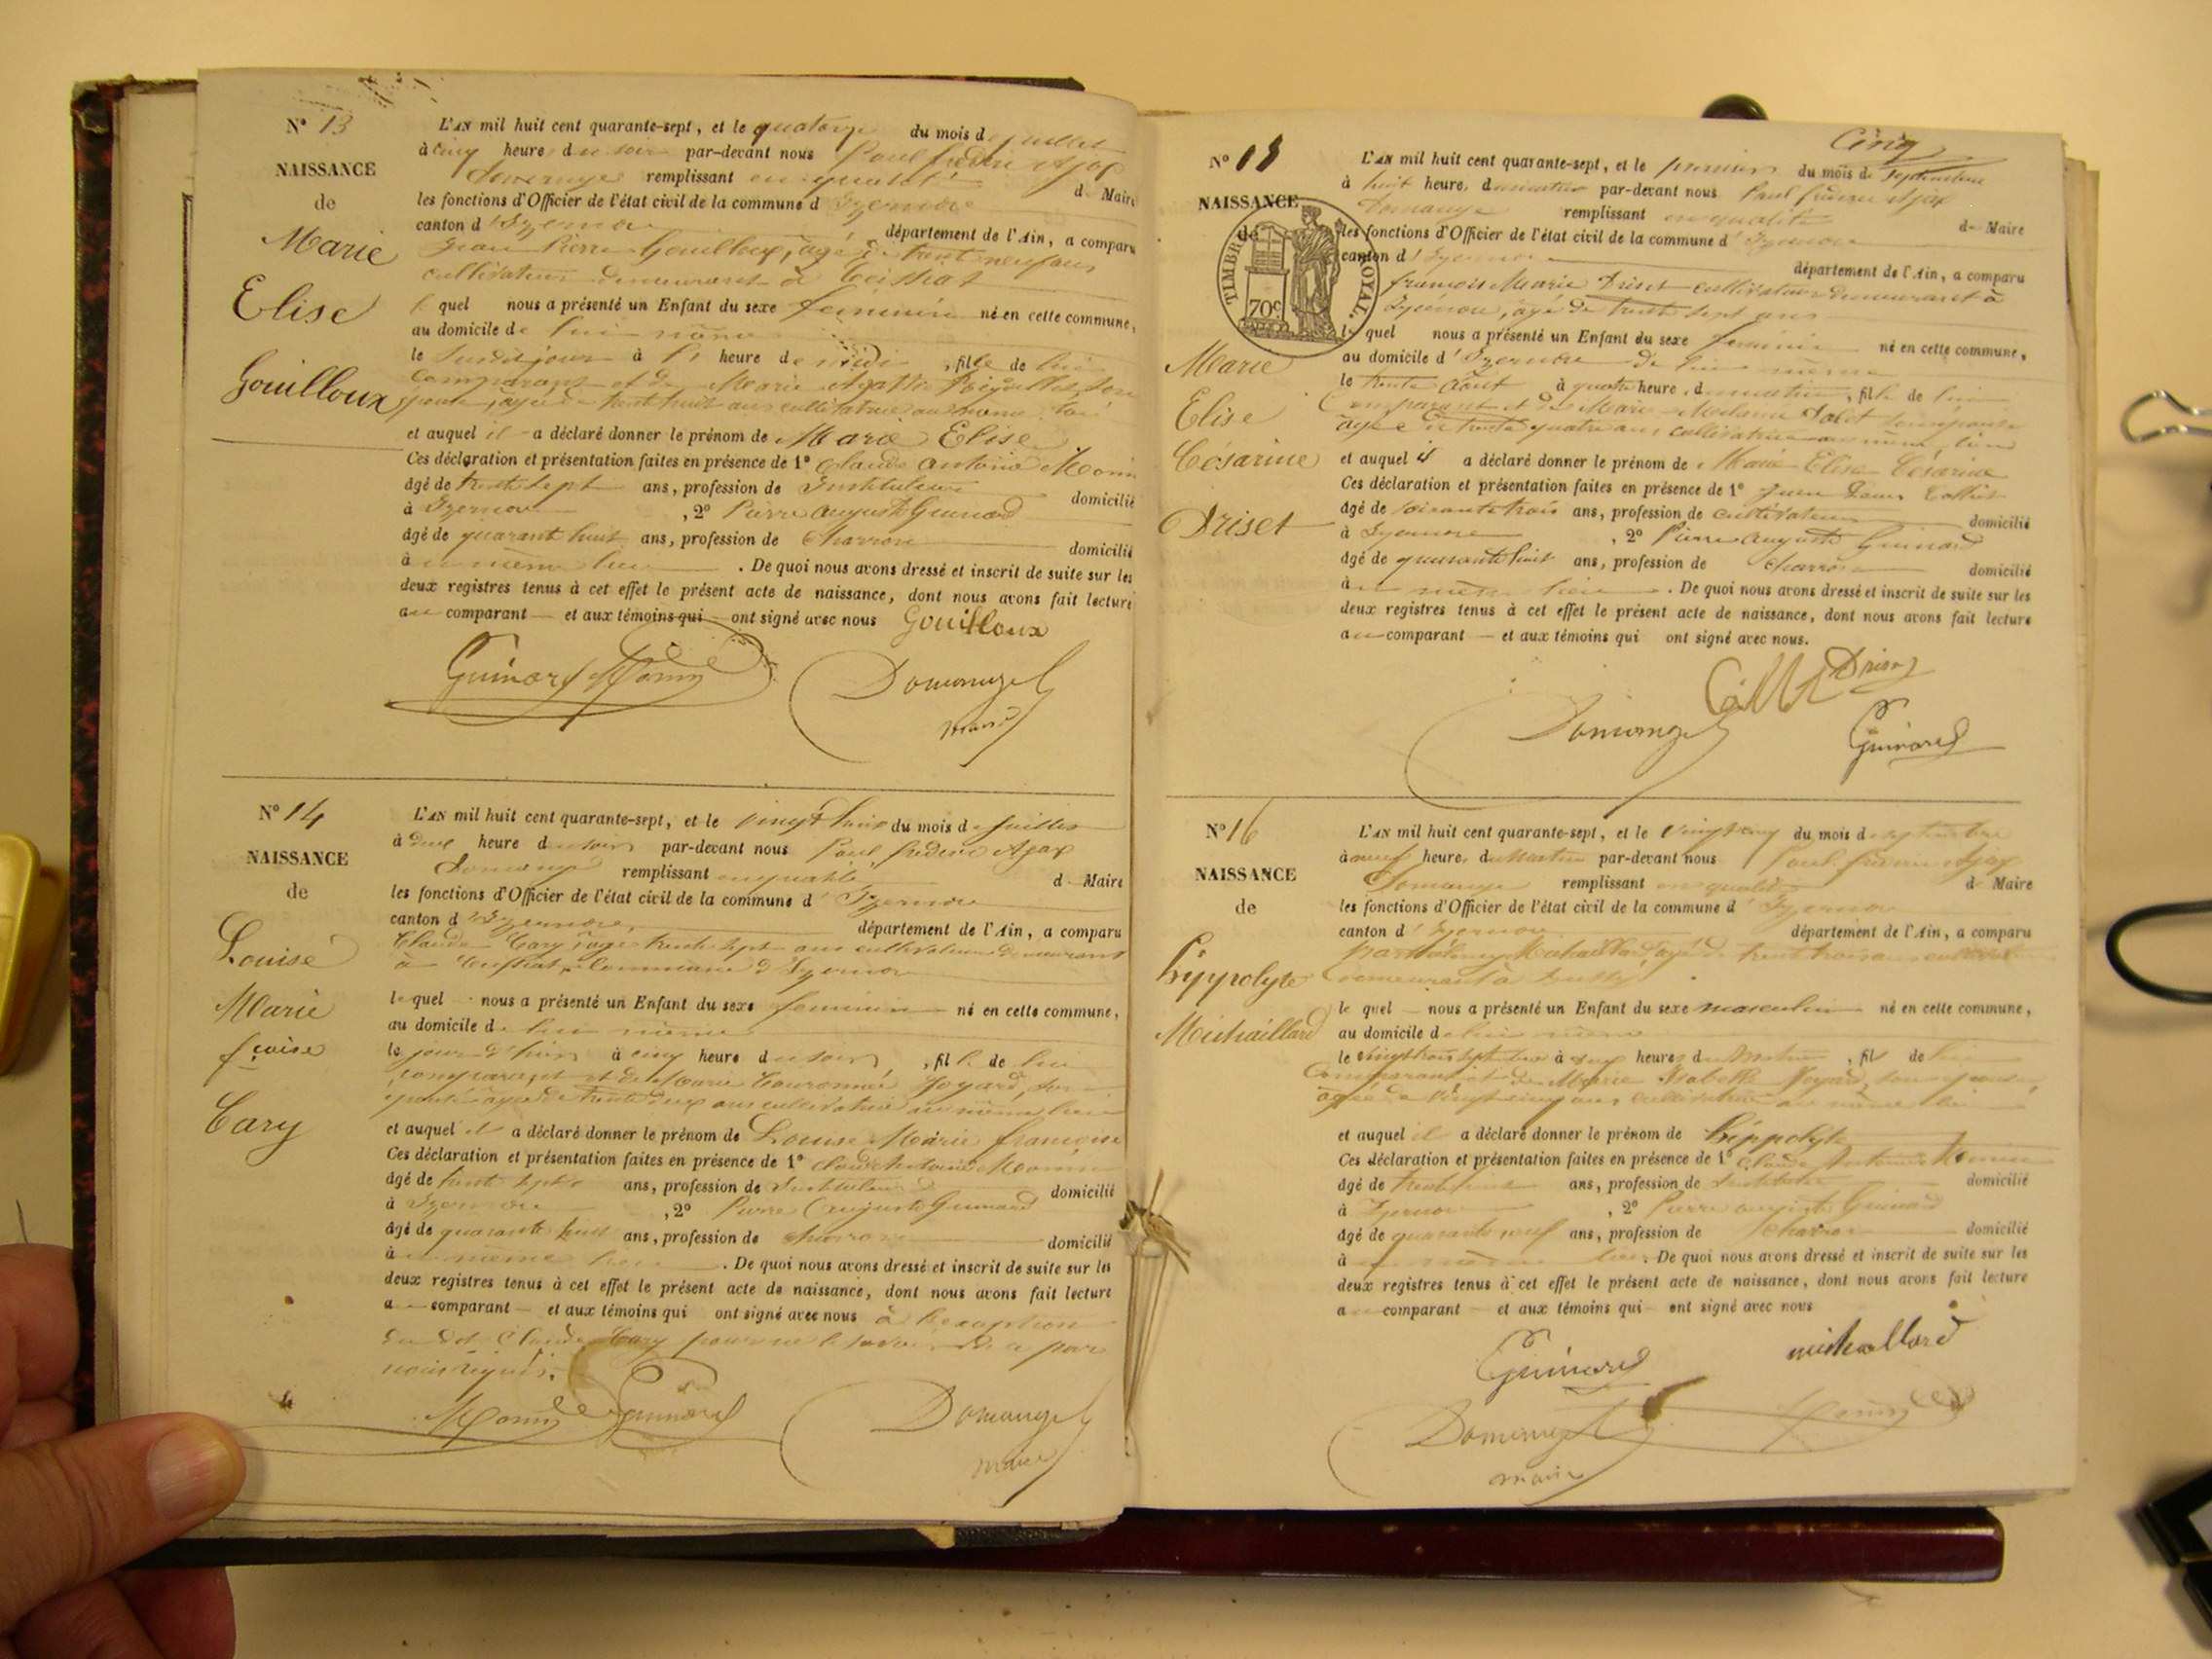 N° 13
NAISSANCE
de
Marie
Elise
Gouilloux
L'AN mil huit cent quarante-sept, et le quatorze du mois de juillet
à cinq heure du soir par-devant nous Paul frédéric Ajax
Domange remplissant en qualité de Maire
les fonctions d'Officier de l'état civil de la commune d'Izernore
canton d'Izernore département de l'Ain, a comparu
Jean Pierre Gouilloux, âgé de trente neuf ans
cultivateur demeurant à Ceissiat
lequel nous a présenté un Enfant du sexe féminin né en cette commune,
au domicile de lui même
le susdit jour à heure de midi, fille de lui
comparant et de Marie Agathe son
épouse, âgée de trente huit ans cultivatrice au même lieu
et auquel il a déclaré donner le prénom de Marie Elise
Ces déclaration et présentation faites en présence de 1° Claude Antoine
âgé de trente sept ans, profession de Instituteur domicilié
à Izernore, 2° Pierre Auguste Guinard
âgé de quarante huit ans, profession de Charron domicilié
à même lieu. De quoi nous avons dressé et inscrit de suite sur les
deux registres tenus à cet effet le présent acte de naissance, dont nous avons fait lecture
au comparant et aux témoins qui ont signé avec nous Gouilloux
Guinard
Domange
maire
N° 14
NAISSANCE
de
Louise
Marie
fçoise
Cary
L'AN mil huit cent quarante-sept, et le vingt trois du mois de juillet
à deux heure du soir par-devant nous Paul frédéric Ajax
Domange remplissant en qualité de Maire
les fonctions d'Officier de l'état civil de la commune d'Izernore
canton d'Izernore, département de l'Ain, a comparu
Claude Cary, âgé trente sept ans cultivateur demeurant
à Ceissiat, Commune d'Izernore
lequel nous a présenté un Enfant du sexe féminin né en cette commune,
au domicile de lui même
le jour d'hier à cinq heure du soir, fille de lui
comparant et de Marie Couronnée Joyard, son
épouse âgée de trente deux ans cultivatrice au même lieu
et auquel il a déclaré donner le prénom de Louise Marie françoise
Ces déclaration et présentation faites en présence de 1° Claude Antoine
âgé de trente sept ans, profession de Instituteur domicilié
à Izernore, 2° Pierre Auguste Guinard
âgé de quarante huit ans, profession de charron domicilié
à même lieu. De quoi nous avons dressé et inscrit de suite sur les
deux registres tenus à cet effet le présent acte de naissance, dont nous avons fait lecture
au comparant et aux témoins qui ont signé avec nous à l'exception
du dit Claude Cary pour ne le savoir de ce par
nous requis.
Guinard
Domange
maire
Cinq
N° 15
NAISSANCE
de
TIMBRE ROYAL.
70c
Marie
Elise
Césarine
Driset
L'AN mil huit cent quarante-sept, et le premier du mois de septembre
à huit heure du matin par-devant nous Paul frédéric Ajax
Domange remplissant en qualité de Maire
les fonctions d'Officier de l'état civil de la commune d'Izernore
canton d'Izernore département de l'Ain, a comparu
françois Marie Driset cultivateur demeurant à
Izernore, âgé de trente sept ans
lequel nous a présenté un Enfant du sexe féminin né en cette commune,
au domicile d'Izernore de lui même
le trente Août à quatre heure du matin, fille de lui
Comparant et de Marie Mélanie son épouse
âgée de trente quatre ans cultivatrice au même lieu
et auquel il a déclaré donner le prénom de Marie Elise Césarine
Ces déclaration et présentation faites en présence de 1° Jean
âgé de soixante trois ans, profession de cultivateur domicilié
à Izernore, 2° Pierre Auguste Guinard
âgé de quarante huit ans, profession de charron domicilié
à même lieu. De quoi nous avons dressé et inscrit de suite sur les
deux registres tenus à cet effet le présent acte de naissance, dont nous avons fait lecture
au comparant et aux témoins qui ont signé avec nous.
Driset
Domange
Guinard
N° 16
NAISSANCE
de
hippolyte
Michaillard
L'AN mil huit cent quarante-sept, et le vingt cinq du mois de septembre
à neuf heure du Matin par-devant nous Paul frédéric Ajax
Domange remplissant en qualité de Maire
les fonctions d'Officier de l'état civil de la commune d'Izernore
canton d'Izernore département de l'Ain, a comparu
Barthélemy Michaillard, âgé de trente trois ans cultivateur
demeurant à
lequel nous a présenté un Enfant du sexe masculin né en cette commune,
au domicile de lui même
le vingt trois septembre à heures du Matin, fils de lui
Comparant et de Marie Isabelle Joyard, son épouse,
âgée de vingt cinq ans cultivatrice au même lieu
et auquel il a déclaré donner le prénom de hippolyte
Ces déclaration et présentation faites en présence de 1° Claude Antoine
âgé de ans, profession de Instituteur domicilié
à Izernore, 2° Pierre Auguste Guinard
âgé de quarante neuf ans, profession de charron domicilié
à même lieu. De quoi nous avons dressé et inscrit de suite sur les
deux registres tenus à cet effet le présent acte de naissance, dont nous avons fait lecture
au comparant et aux témoins qui ont signé avec nous
Guinard michallard
Domange
maire